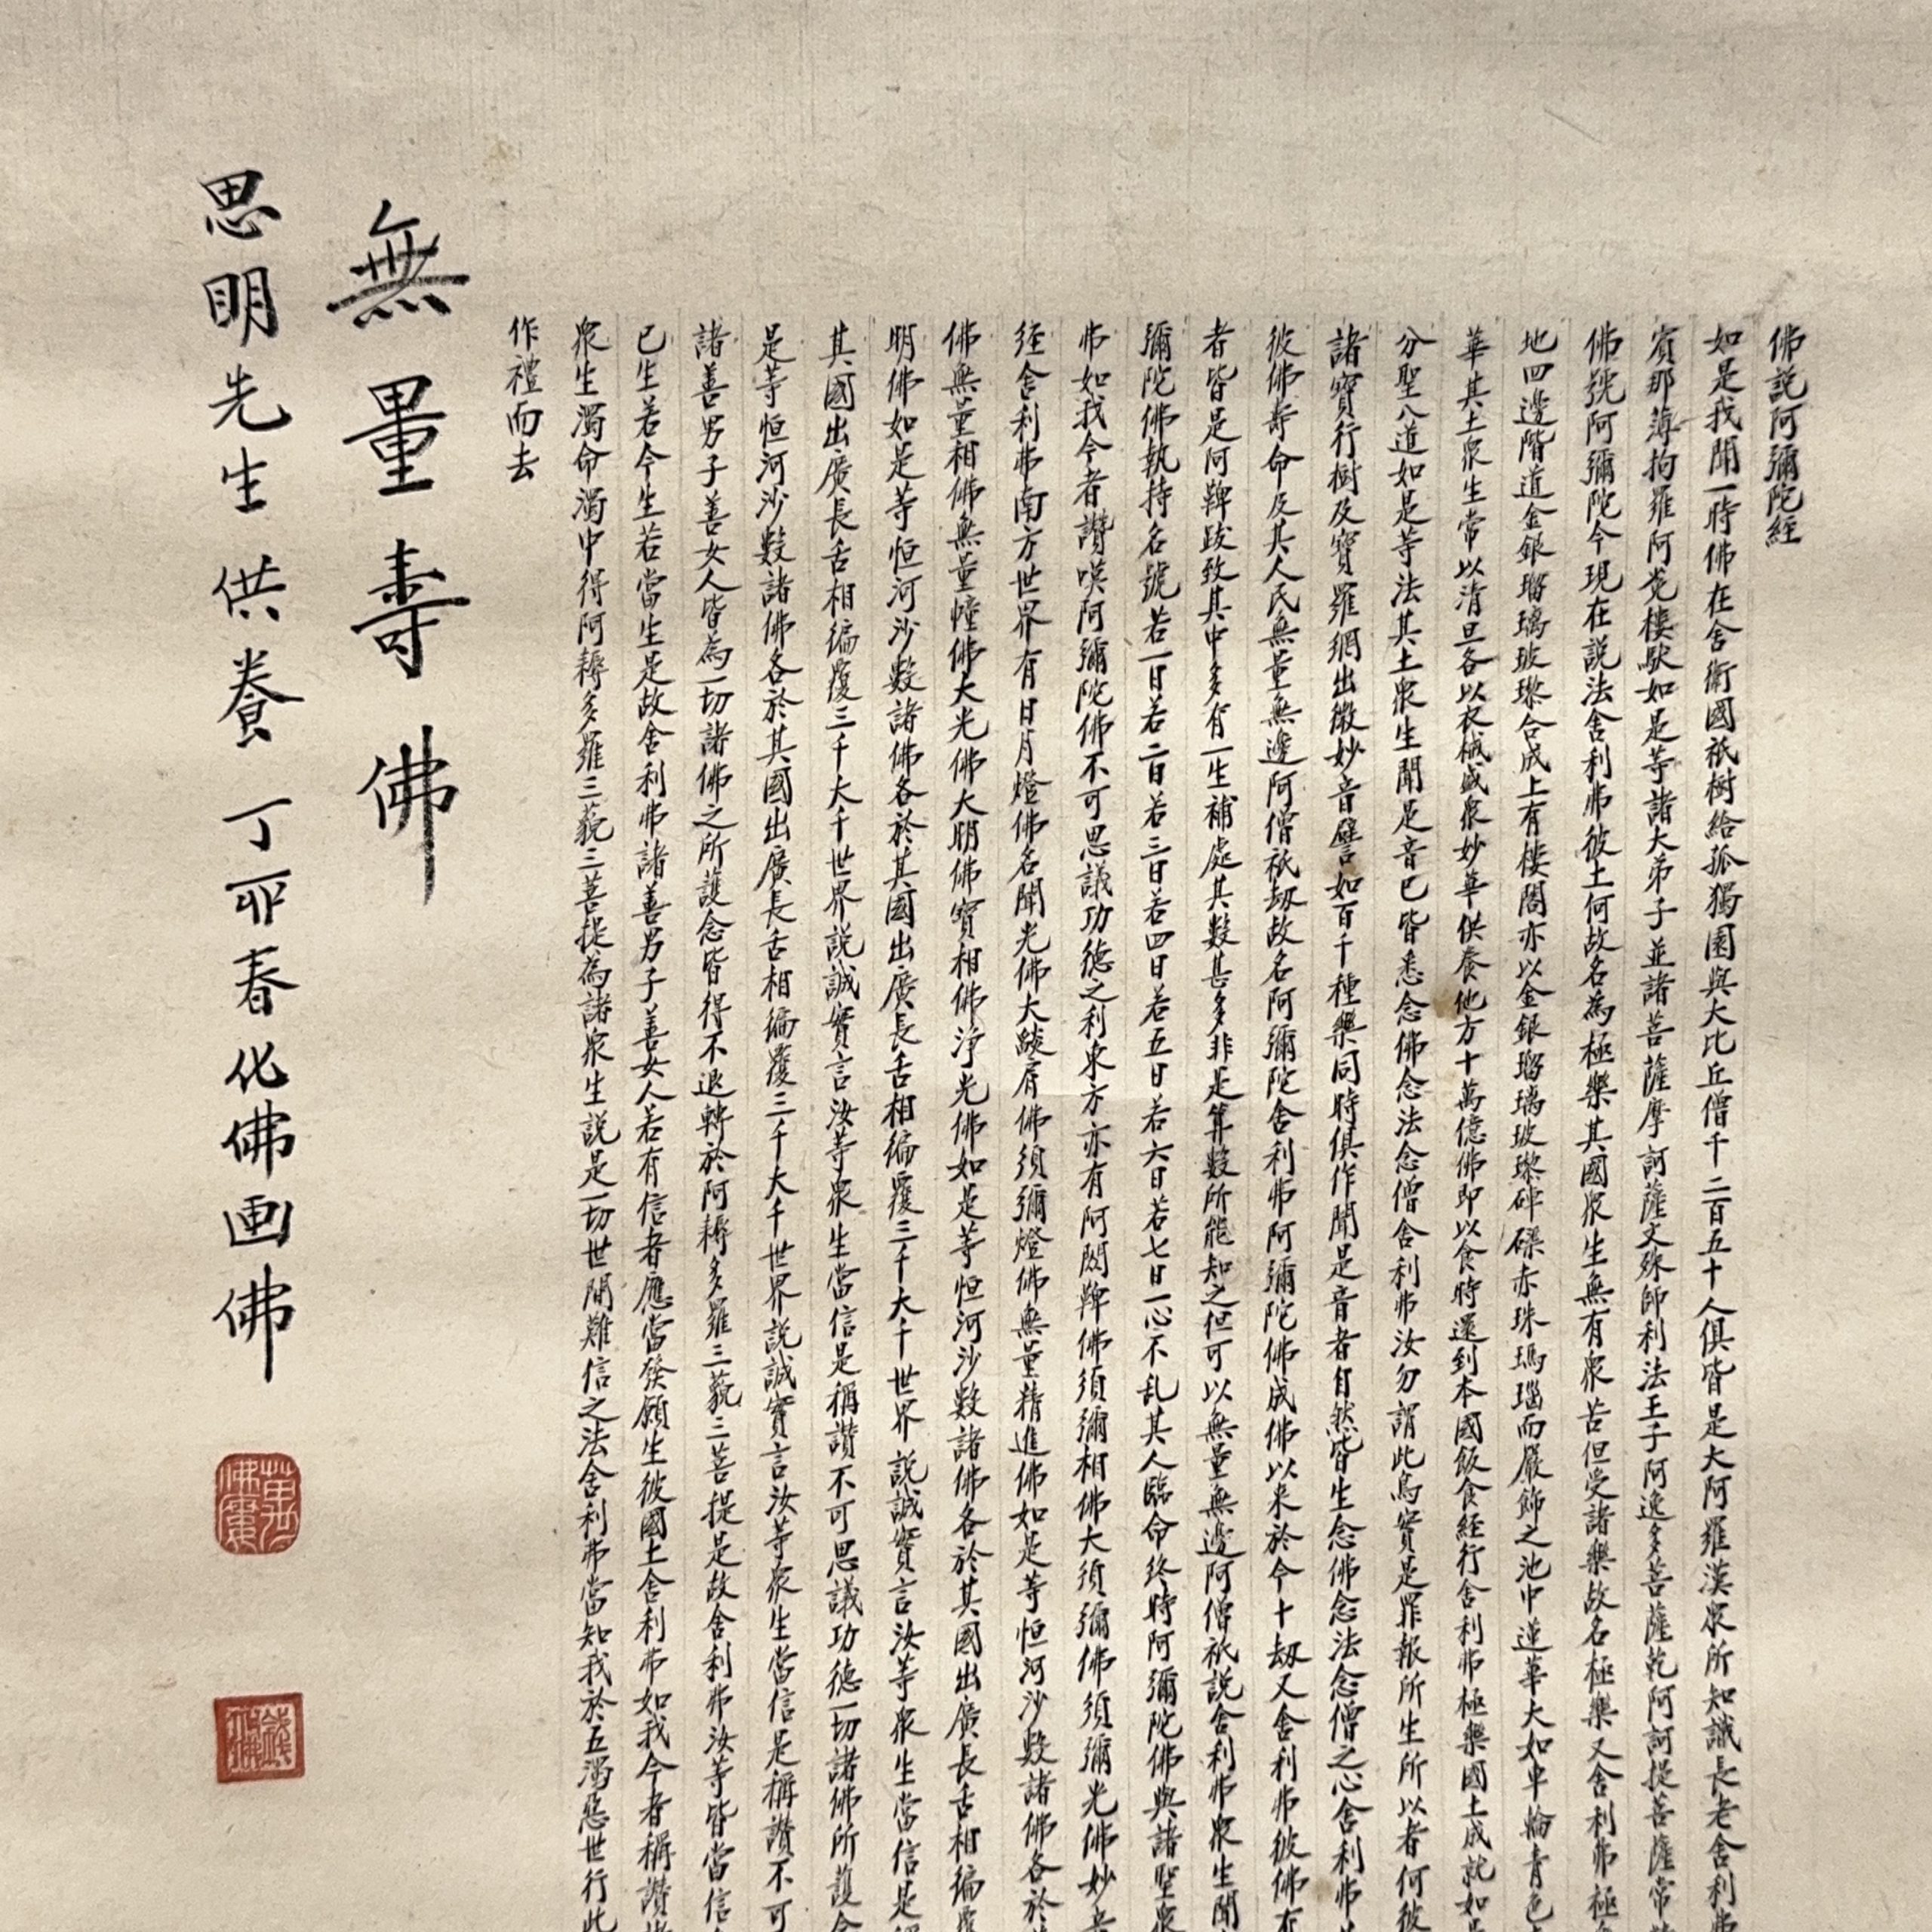 佛說阿彌陀經
如是我聞一時佛在舍衛國祇樹給孤獨園與大比丘僧千二百五十人俱皆是大阿羅漢眾所知識長老舍利弗
賓那薄拘羅阿㝹樓馱如是等諸大弟子並諸菩薩摩訶薩文殊師利法王子阿逸多菩薩乾阿訶提菩薩常
佛號阿彌陀今現在說法舍利弗彼土何故名為極樂其國眾生無有眾苦但受諸樂故名極樂又舍利弗極
地四邊階道金銀瑠璃玻瓈合成上有樓閣亦以金銀瑠璃玻瓈硨磲赤珠瑪瑙而嚴飾之池中蓮華大如車輪青色
華其土眾生常以清旦各以衣祴盛眾妙華供養他方十萬億佛即以食時還到本國飯食經行舍利弗極樂國土成就如是
分聖八道如是等法其土眾生聞是音已皆悉念佛念法念僧舍利弗汝勿謂此鳥實是罪報所生所以者何彼
諸寶行樹及寶羅網出微妙音譬如百千種樂同時俱作聞是音者自然皆生念佛念法念僧之心舍利弗
彼佛壽命及其人民無量無邊阿僧祇劫故名阿彌陀舍利弗阿彌陀佛成佛以來於今十劫又舍利弗彼佛有
者皆是阿鞞跋致其中多有一生補處其數甚多非是算數所能知之但可以無量無邊阿僧祇說舍利弗眾生聞
彌陀佛執持名號若一日若二日若三日若四日若五日若六日若七日一心不乱其人臨命終時阿彌陀佛與諸聖眾
弗如我今者讚嘆阿彌陀佛不可思議功德之利東方亦有阿閦鞞佛須彌相佛大須彌佛須彌光佛妙音
經舍利弗南方世界有日月燈佛名聞光佛大燄肩佛須彌燈佛無量精進佛如是等恒河沙數諸佛各於
佛無量相佛無量幢佛大光佛大明佛寶相佛淨光佛如是等恒河沙數諸佛各於其國出廣長舌相徧覆
明佛如是等恒河沙數諸佛各於其國出廣長舌相徧覆三千大千世界說誠實言汝等眾生當信是稱
其國出廣長舌相徧覆三千大千世界說誠實言汝等眾生當信是稱讚不可思議功德一切諸佛所護念
是等恒河沙數諸佛各於其國出廣長舌相徧覆三千大千世界說誠實言汝等眾生當信是稱讚不可
諸善男子善女人皆為一切諸佛之所護念皆得不退轉於阿耨多羅三藐三菩提是故舍利弗汝等皆當信
已生若今生若當生是故舍利弗諸善男子善女人若有信者應當發願生彼國土舍利弗如我今者稱讚
眾生濁命濁中得阿耨多羅三藐三菩提為諸眾生說是一切世間難信之法舍利弗當知我於五濁惡世行此
作禮而去
無量壽佛
思明先生供養丁丣春化佛画佛